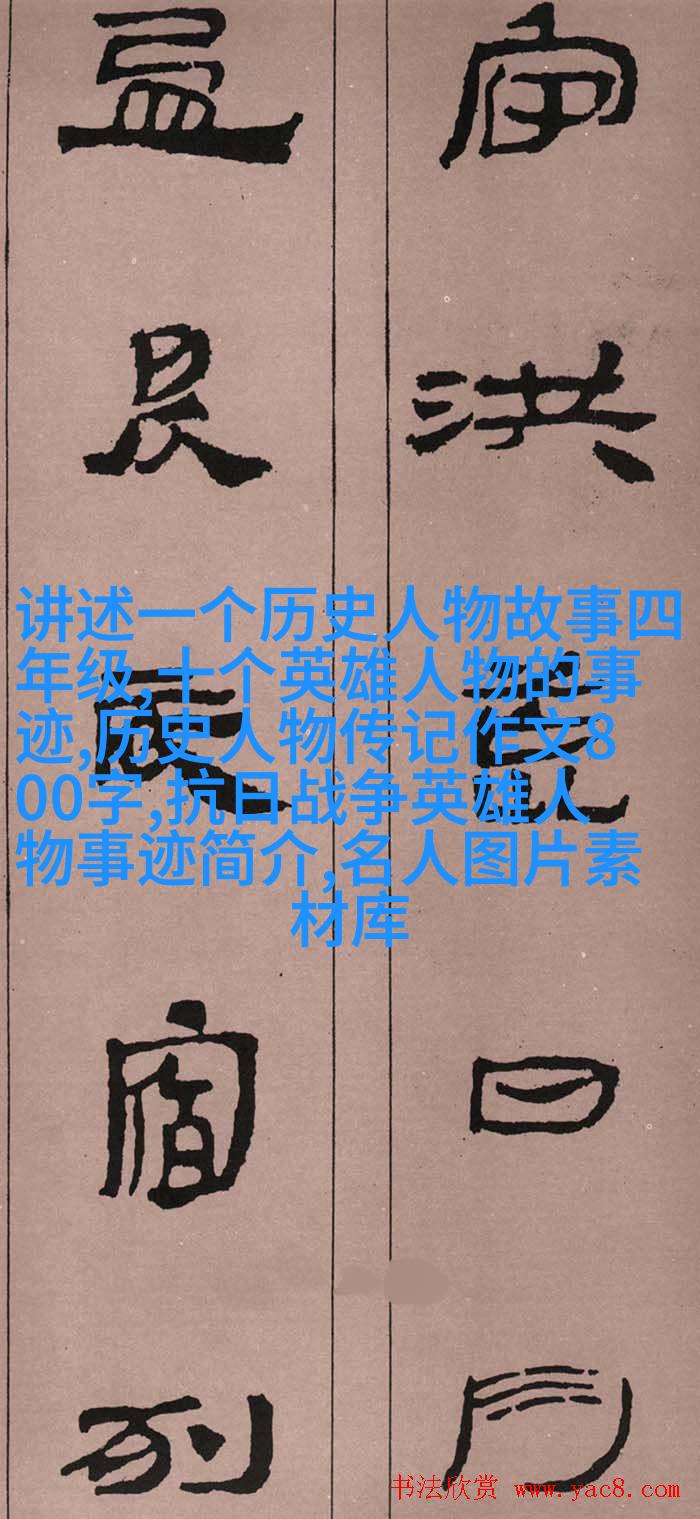 宇洪荒日月
盈昃辰宿列
讲述一个历史人物故事四
年级,十个英雄人物的事
迹,历史人物传记作文8
00字,抗日战争英雄人
物事迹简介,名人图片素
材库
书法欣赏 www.yac8.com